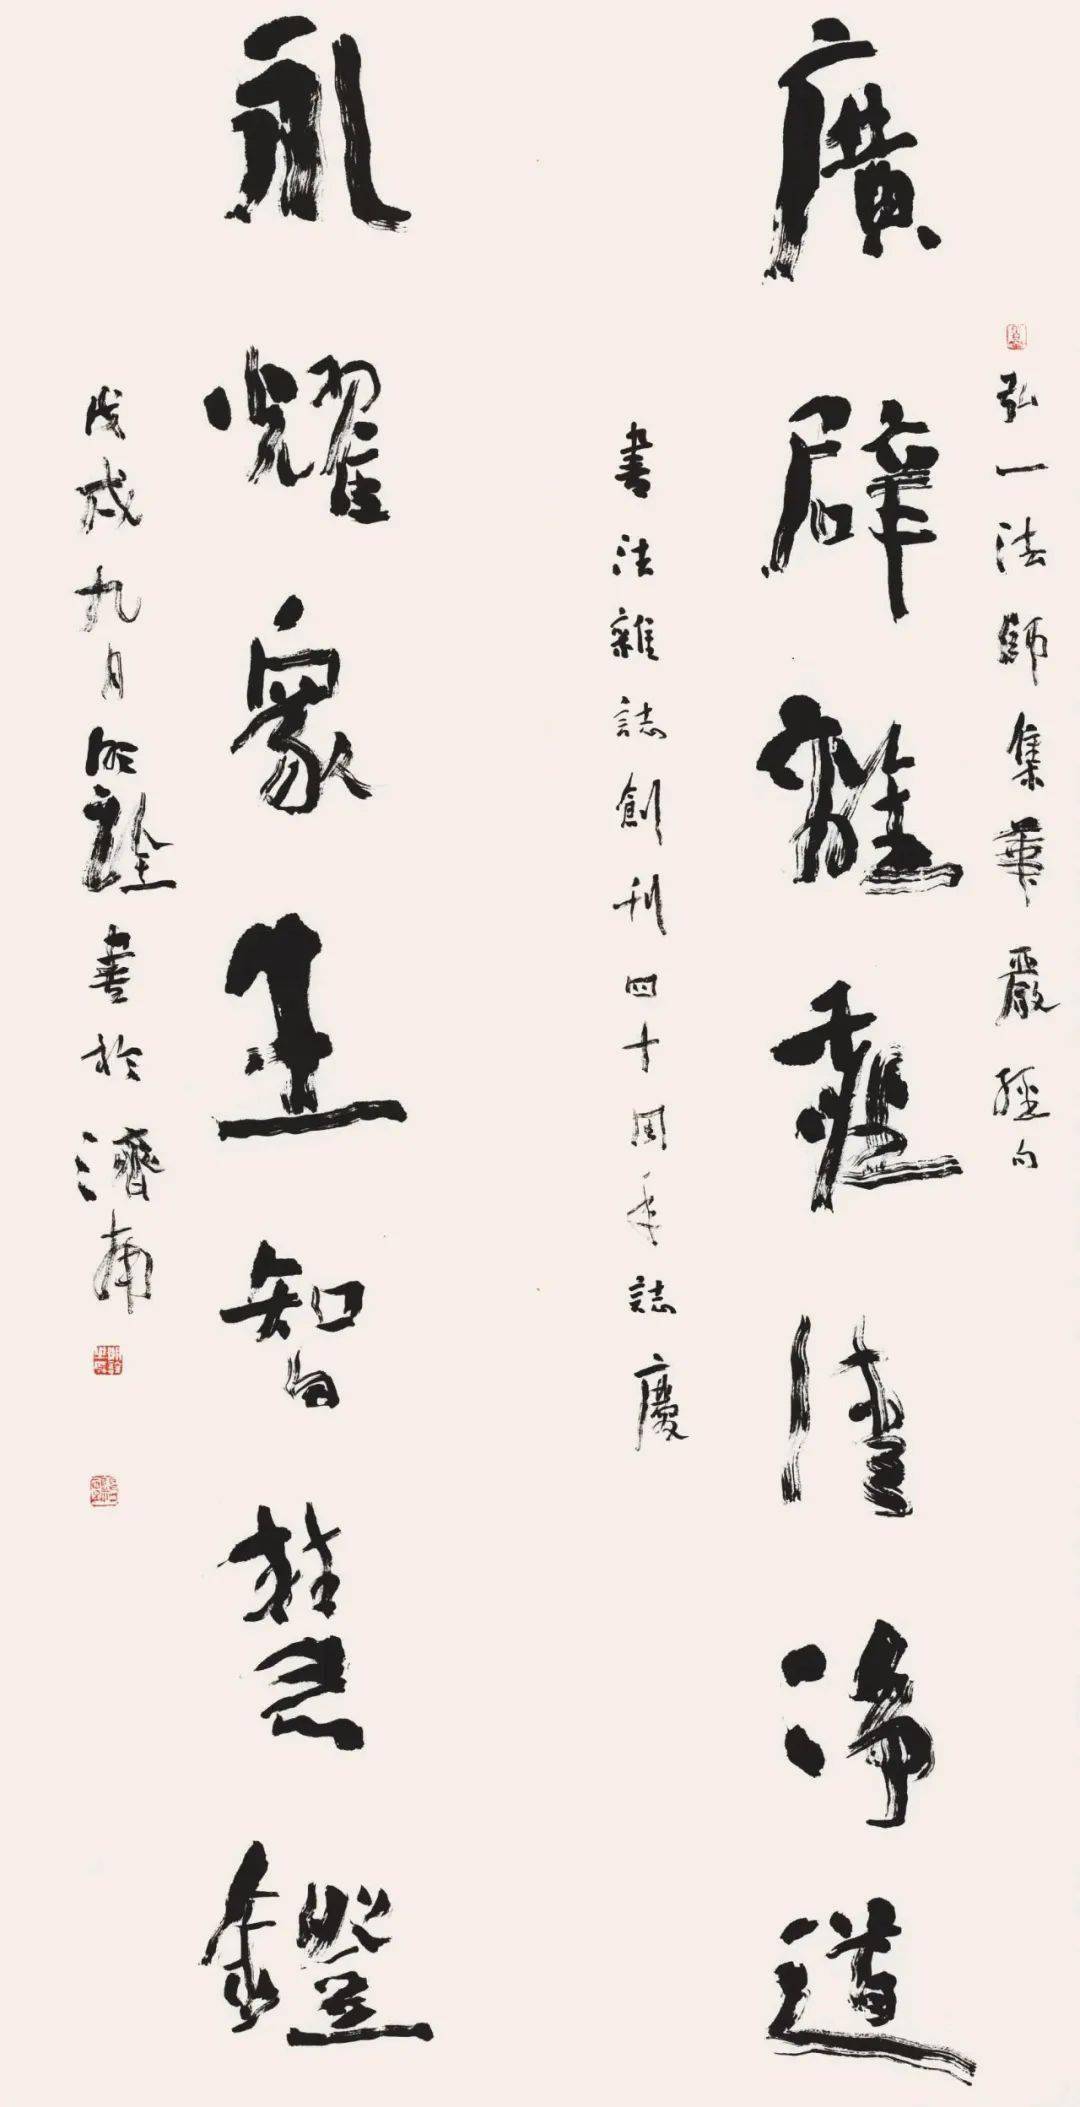 弘一法師集華嚴經句
廣辟離塵清净道
書法雜誌創刊四十周年誌慶
永耀眾生智慧鐙
戊戌九月明詮書於濟南